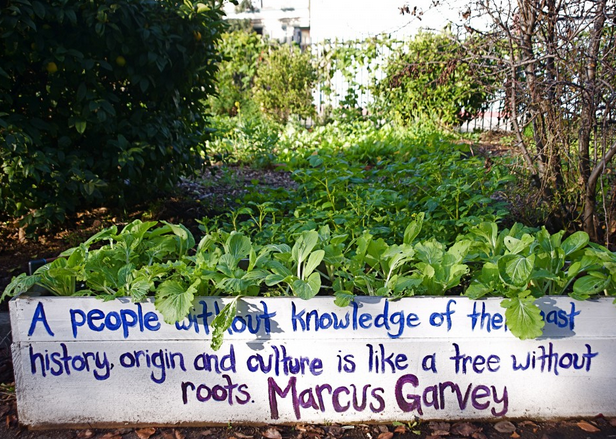 A people without knowledge of their past
history, origin and culture is like a tree without
roots. Marcus Garvey